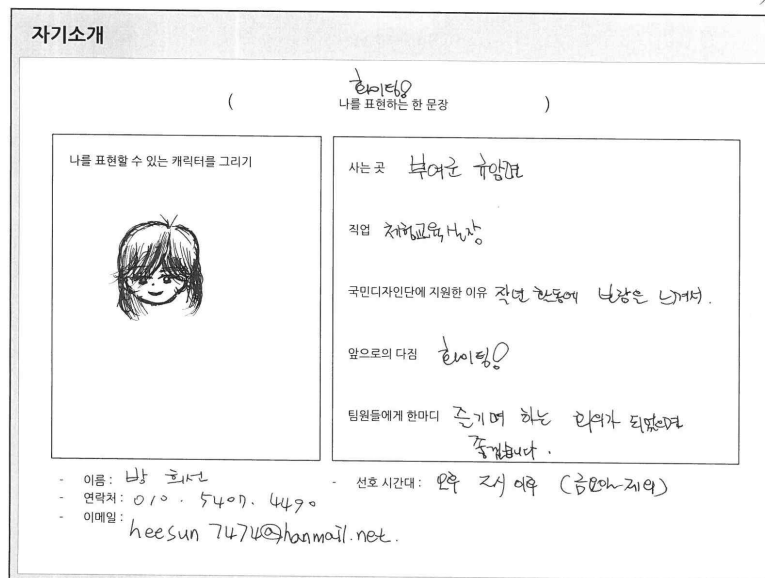 자기소개
( 화이팅! )
나를 표현하는 한 문장
나를 표현할 수 있는 캐릭터를 그리기
사는 곳 부여군 규암면
직업 체험교육농장
국민디자인단에 지원한 이유 작년 활동에 보람을 느껴서.
앞으로의 다짐 화이팅!
팀원들에게 한마디 즐기며 하는 회의가 되었으면
좋겠습니다.
- 이름 : 방 희선
- 연락처 : 010. 5407. 4490
- 이메일 :
heesun7474@hanmail.net.
- 선호 시간대 : 오후 2시 이후 (금요일 제외)